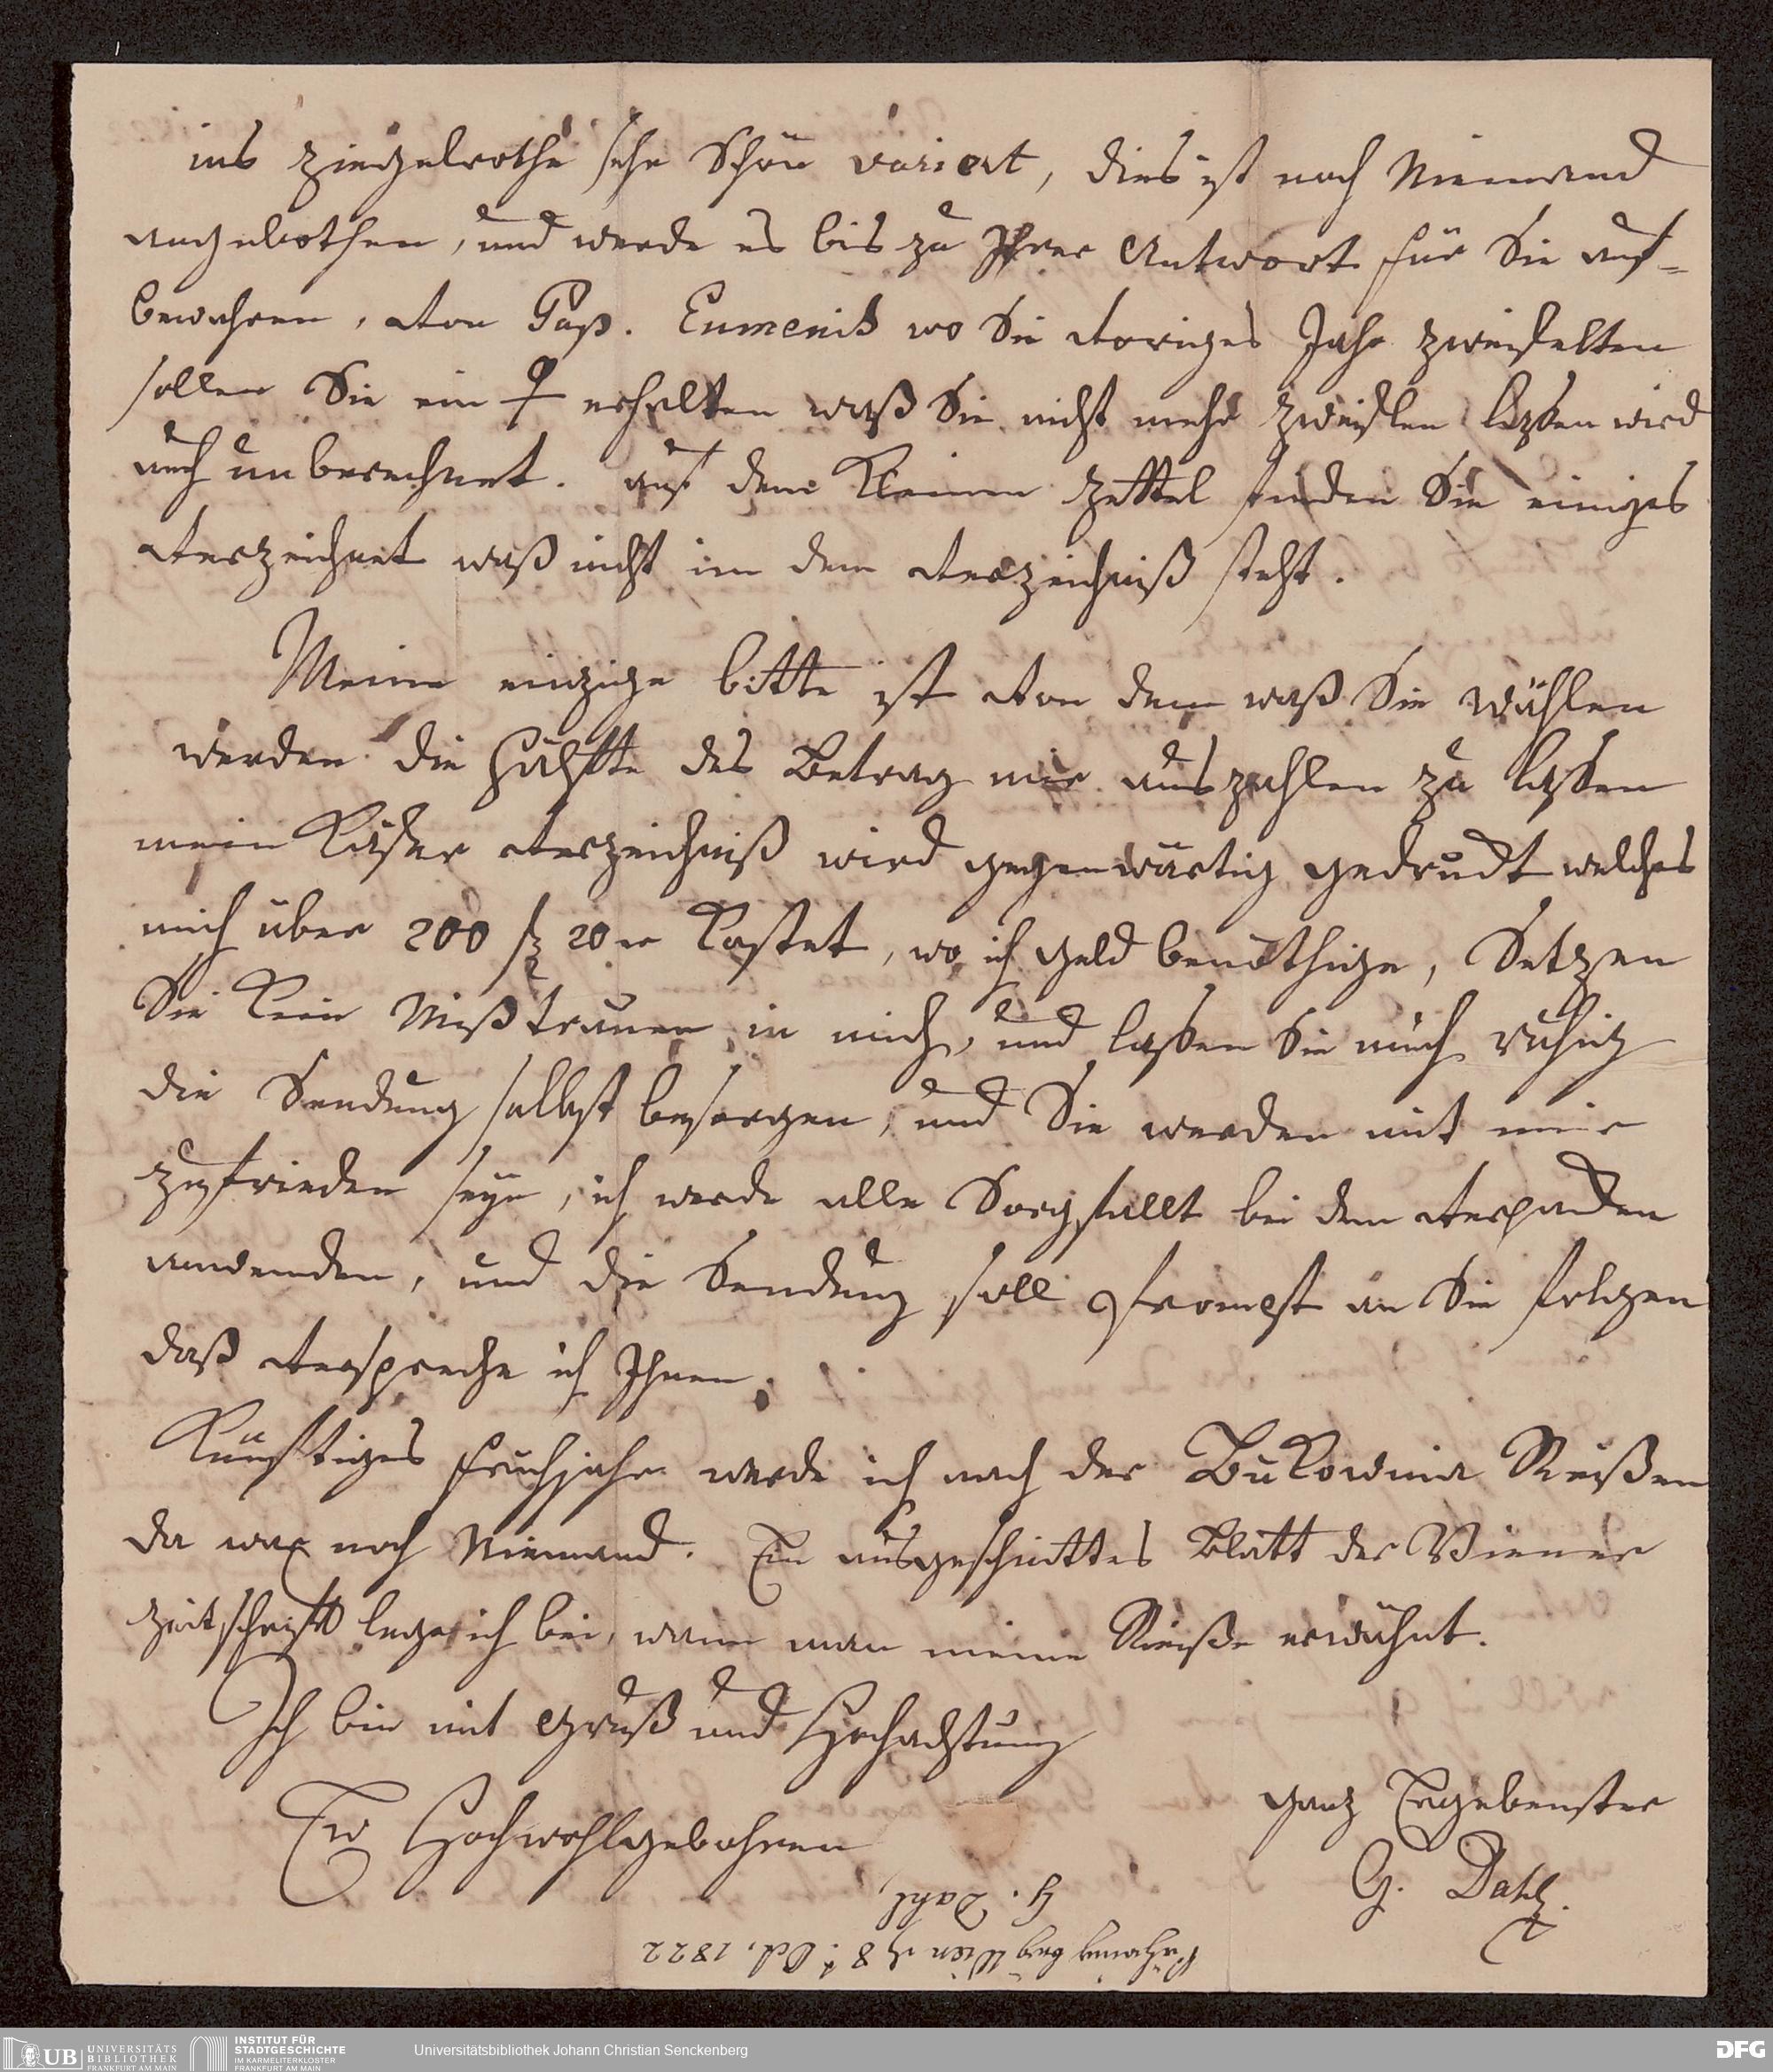 ins ziegelrothe sehr Schön variert, dies ist noch Niemand
angebothen, und werde es bis zu Ihrer Antwort für Sie auf-
bewahren, von Pap. Eumenis wo Sie voriges Jahr zweifelten
sollen Sie ein ♀ erhalten waß Sie nicht mehr zweiflen laßen wird
auch unberechnet. auf dem Kleinen Zettel finden Sie einiges
verzeichnet waß nicht in dem Verzeichniß steht.
Meine einzige bitte ist von dem waß Sie wählen
werden die Hälfte des Betrag mir auszahlen zu laßen
mein Käfer Verzeichniß wird gegenwärtig gedruckt welches
mich über 200 f 20er Kostet, wo ich Geld benöthige, Setzen
Sie Kein Mißtrauen in mich, und laßen Sie mich ruhig
die Sendung selbst besorgen, und Sie werden mit mir
zufrieden seyn, ich werde alle Sorgfallt bei dem verpacken
anwenden, und die Sendung soll prompt an Sie folgen
daß verspreche ich Ihnen.
Künftiges Fruhjahr werde ich nach der Bukowina Reißen
da war noch Niemand. Ein ausgeschnittes Blatt der Wiener
Zeitschrift lege ich bei, wenn man meine Reiße erwähnt.
Ich bin mit Gruß und Hochachtung
Ew Hochwohlgebohren
ganz Ergebenster
G. Dahl
G. Dahl,
Wien 8t Oct. 1822
UB UNIVERSITÄTS BIBLIOTHEK FRANKFURT AM MAIN
INSTITUT FÜR STADTGESCHICHTE IM KARMELITERKLOSTER FRANKFURT AM MAIN
Universitätsbibliothek Johann Christian Senckenberg
DFG